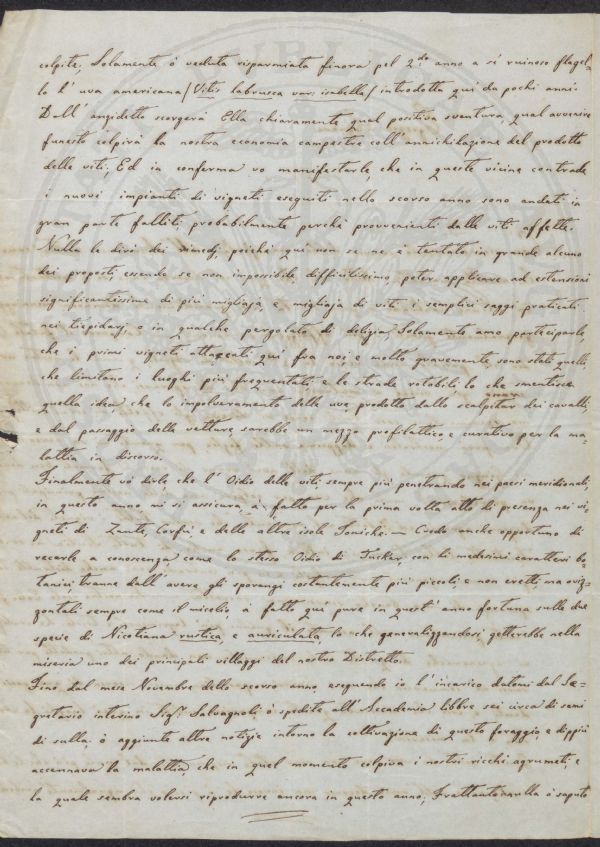 colpite, Solamente ò veduta risparmiata finora pel 2.do anno a sì ruinoso flagel-
lo l'uva americana /Vitis labrusca var: isabella/ introdotta quì da pochi anni.
Dall'anzidetto scorgerà Ella chiaramente qual positiva sventura, qual avvenire
funesto colpirà la nostra economia campestre coll'annichilazione del prodotto
delle viti, Ed in conferma vo manifestarle, che in queste vicine contrade
i nuovi impianti di vigneti eseguiti nello scorso anno sono andati in
gran parte falliti, probabilmente perchè provvenienti dalle viti affette.
Nulla le dirò dei rimedj, poichè quì non se ne è tentato in grande alcuno
dei proposti, essendo se non impossibile difficilissimo, poter applicare ad estensioni
significantissime di più migliaja, e migliaja di viti i semplici saggi praticati
nei tiepidarj, o in qualche pergolato di delizia. Solamente amo parteciparle,
che i primi vigneti attaccati quì fra noi e molto gravemente, sono stati quelli,
che limitano i luoghi più frequentati e le strade rotabili, lo che smentisce
quella idea, che lo impolveramento delle uve, prodotto dallo scalpitar dei cavalli,
e dal passaggio delle vetture, sarebbe un mezzo profilattico, e curativo per la ma-
lattia in discorso.
Finalmente vò dirle, che l'Oidio delle viti sempre più penetrando nei paesi meridionali,
in questo anno mi si assicura, à fatto per la prima volta atto di presenza nei vi-
gneti di Zante, Corfù, e delle altre isole Joniche. — Credo anche opportuno di
recarle a conoscenza, come lo stesso Oidio di Tucker, con li medesimi caratteri bo-
tanici, tranne dall'avere gli sporangi costantemente più piccoli, e non eretti, ma oriz-
zontali sempre come il micelio, à fatto quì pure in quest'anno fortuna sulle due
specie di Nicotiana rustica, e auriculata, lo che generalizzandosi getterebbe nella
miseria uno dei principali villaggi del nostro Distretto.
Fino dal mese Novembre dello scorso anno, eseguendo io l'incarico datomi dal Se-
gretario interino Sigr. Salvagnoli, ò spedite all'Accademia libbre sei circa di semi
di sulla, ò aggiunte altre notizie intorno la coltivazione di questo foraggio, e di più
accennava la malattia, che in quel momento colpiva i nostri ricchi agrumeti, e
la quale sembra volersi riprodurre ancora in questo anno, Frattanto nulla ò saputo